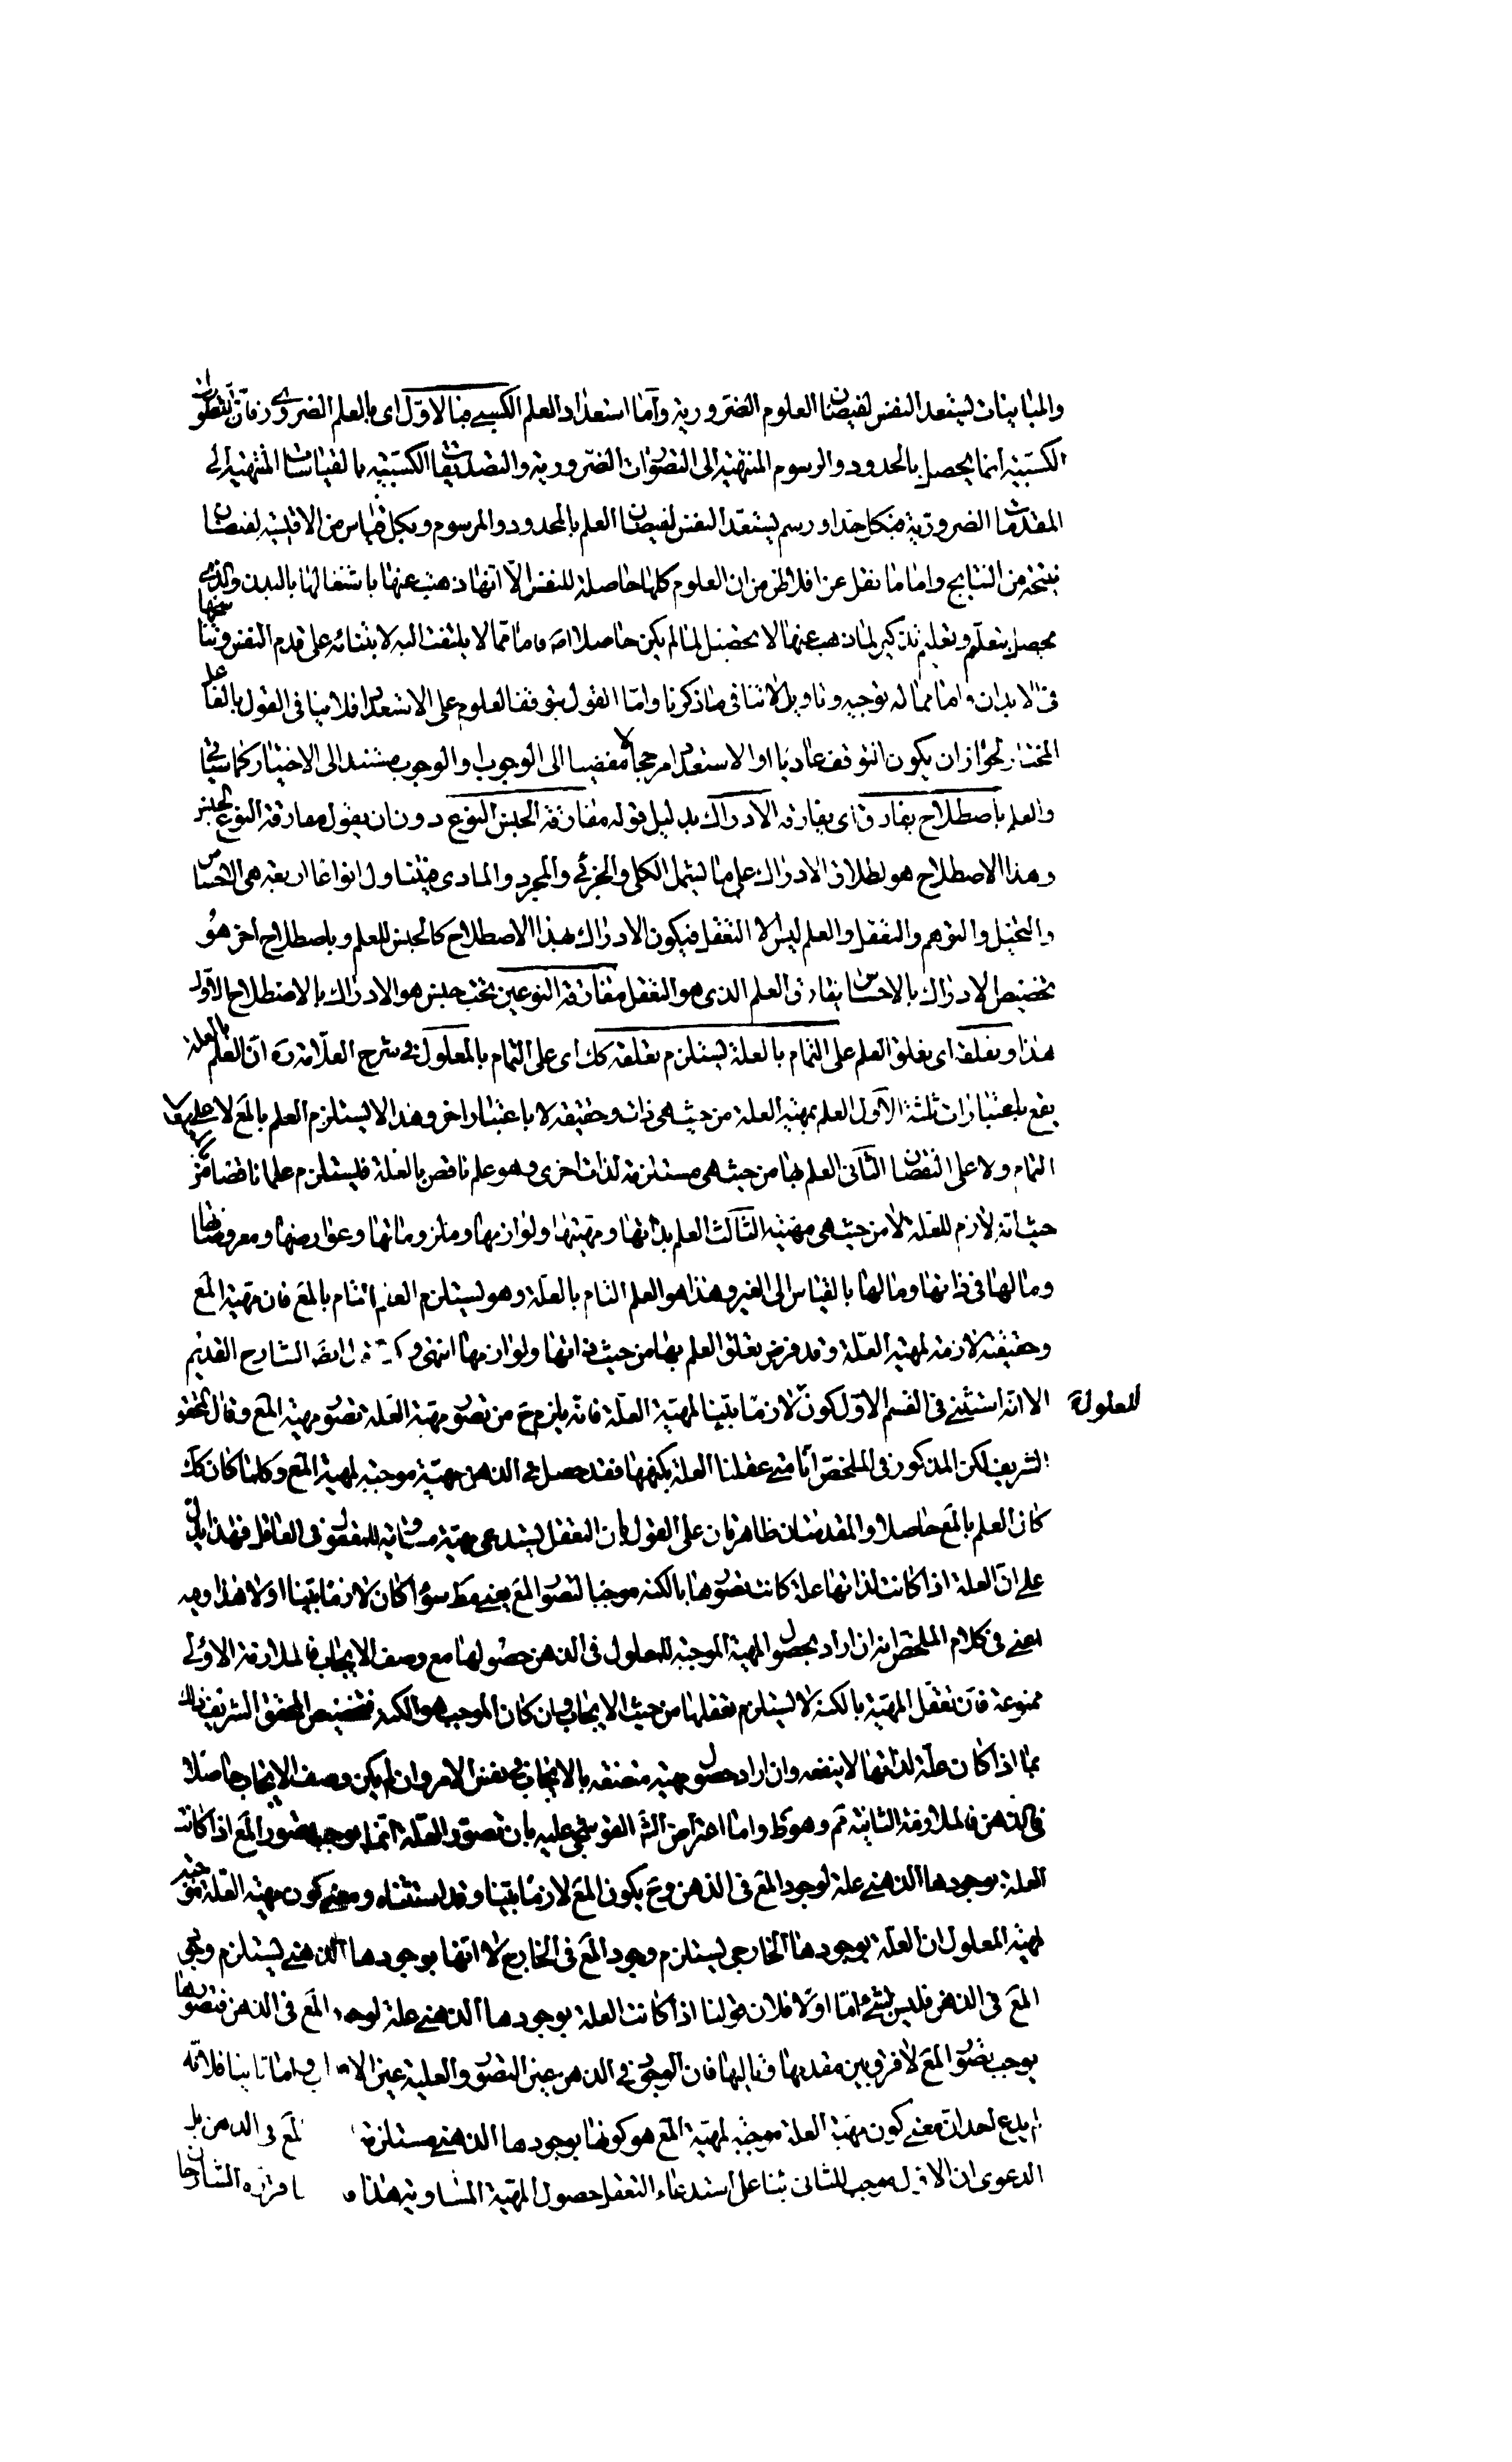 والمباينات ليستعد النفس لفيضان العلوم الضرورية وآما استعداد العلم الكسبى فبالاول اى بالعلم الضرورى فان التصورات
الكسبيّة انما يحصل بالحدود والرسوم المنتهية الى التصورات الضرورية والتصديقات الكسبيّة بالقياسات المنتهية الى
المقدمات الضرورية فبكل حد او رسم يستعد النفس لفيضان العلم بالمحدود والمرسوم وبكل قياس من الاقيسة لفيضان
نتيجة من النتايج واما ما نقل عن افلاطن من ان العلوم كلها حاصلة للنفس الّا انها ذهبت عنها باشتغالها بالبدن والذى
يحصل بتعلم وتعليم تذكير لما ذهب عنها لا تحصيل لما لم يكن حاصلا فاما مما لا يلتفت اليه لابتنائه على قدم النفس وتناسخها
فى الابدان واما مما له توجيه وتاويل لا تنافى ما ذكرنا وامّا القول بتوقف العلوم على الاستعداد فلا ينافى القول بالفاعل
المختار لجواز ان يكون التوقف عاديا او الاستعداد مرجحا لا مفضيا الى الوجوب او الوجوب مستند الى الاختيار كما سيجئ
والعلم باصطلاح يفارق اى يفارقه الادراك بدليل قوله مفارقة الجنس النوع دون ان يقول مفارقة النوع الجنس
وهذا الاصطلاح هو اطلاق الادراك على ما يشمل الكلى والجزئى والمجرد والمادى فيتناول انواعا اربعة هى الاحساس
والتخيل والتوهم والتعقل والعلم ليس الا التعقل فيكون الادراك بهذا الاصطلاح كالجنس للعلم وباصطلاح اخر هو
تخصيص الادراك بالاحساس يفارق العلم الذى هو التعقل مفارقة النوعين تحت جنس هو الادراك بالاصطلاح الاول
هذا وتعلقه اى تعلق العلم على التمام بالعلة يستلزم تعلقه كك اى على التمام بالمعلول فى شرح العلامة ره ان العلم بالعلة
يقع باعتبارات ثلثة الاول العلم بمهية العلة من حيث هى ذات وحقيقة لا باعتبار اخر وهذا لا يستلزم العلم بالمع لا على
التمام ولا على النقصان الثانى العلم بها من حيث هى مستلزمة لذات اخرى وهو علم ناقص بالعلة فيستلزم علما ناقصا من
حيث انه لازم للعلة لا من حيث هى مهيته الثالث العلم بذاتها ومهيتها ولوازمها وملزوماتها وعوارضها ومعروضاتها
وما لها فى ذاتها وما لها بالقياس الى الغير وهذا هو العلم التام بالعلة وهو يستلزم العلم التام بالمع فان مهية المع
وحقيقته لازمة لمهية العلة وقد فرض تعلق العلم بها من حيث ذاتها ولوازمها انتهى ايضا الشارح القديم
الا انه استثنى فى القسم الاول كون لازما بينا لمهية العلة فانه يلزم ح من تصور مهية العلة تصور مهية المع وقال المحقق
للمعلولة
الشريف لكن المذكور فى الملخص انا متى عقلنا العلة بكنهها فقد حصل فى الذهن مهية موجبة لمهية المع وكلما كان كك
كان العلم بالمع حاصلا والمقدمتان ظاهرتان على القول بان التعقل يستدعى مهية مساوية للمعقول فى العاقل فهذا يدل
على ان العلة اذا كانت لذاتها علة كانت تصورها بالكنه موجبا لتصور المع يعنى مط سواء كان لازما بينا اولا هذا وفيه
يعنى فى كلام الملخص انه ان اراد بحصول المهية الموجبة للمعلول فى الذهن حصولها مع وصف الايجاب فالملازمة الاولى
ممنوعة فان تعقل المهية بالكنه لا يستلزم تعقلها من حيث الايجاب وان كان الموجب هو الكنه فتخصيص المحقق الشريف ذلك
بما اذا كان علة لذاتها لا ينفعه وان اراد حصول مهية متصفة بالايجاب فى نفس الامر وان لم يكن وصف الايجاب حاصلا
فى الذهن فالملازمة الثانية تم وهو ظ واما اعتراض الش القوشجى عليه بان تصور العلة انما يوجب تصور المع اذا كانت
العلة بوجودها الذهنى علة لوجود المع فى الذهن وح يكون المع لازما بينا وقد استثناه ومعنى كون مهية العلة موجبة
لمهية المعلول ان العلة بوجودها الخارجى يستلزم وجود المع فى الخارج لا انها بوجودها الذهنى يستلزم وجود
المع فى الذهن فليس بشئ اما اولا فلان قولنا اذا كانت العلة بوجودها الذهنى علة لوجود المع فى الذهن فتصورها
يوجب تصور المع لا فرق بين مقدمها وتاليها فان الوجود فى الذهن عين التصور والعلية عين واما ثانيا فلانه
لم يدع احد ان معنى كون مهية العلة موجبة لمهية المع هو كونها بوجودها الذهنى مستلزمة المع فى الذهن بل
الدعوى ان الاول موجب للثانى بناء على استدعاء التعقل حصول المهية المساوية هذا الشارحان